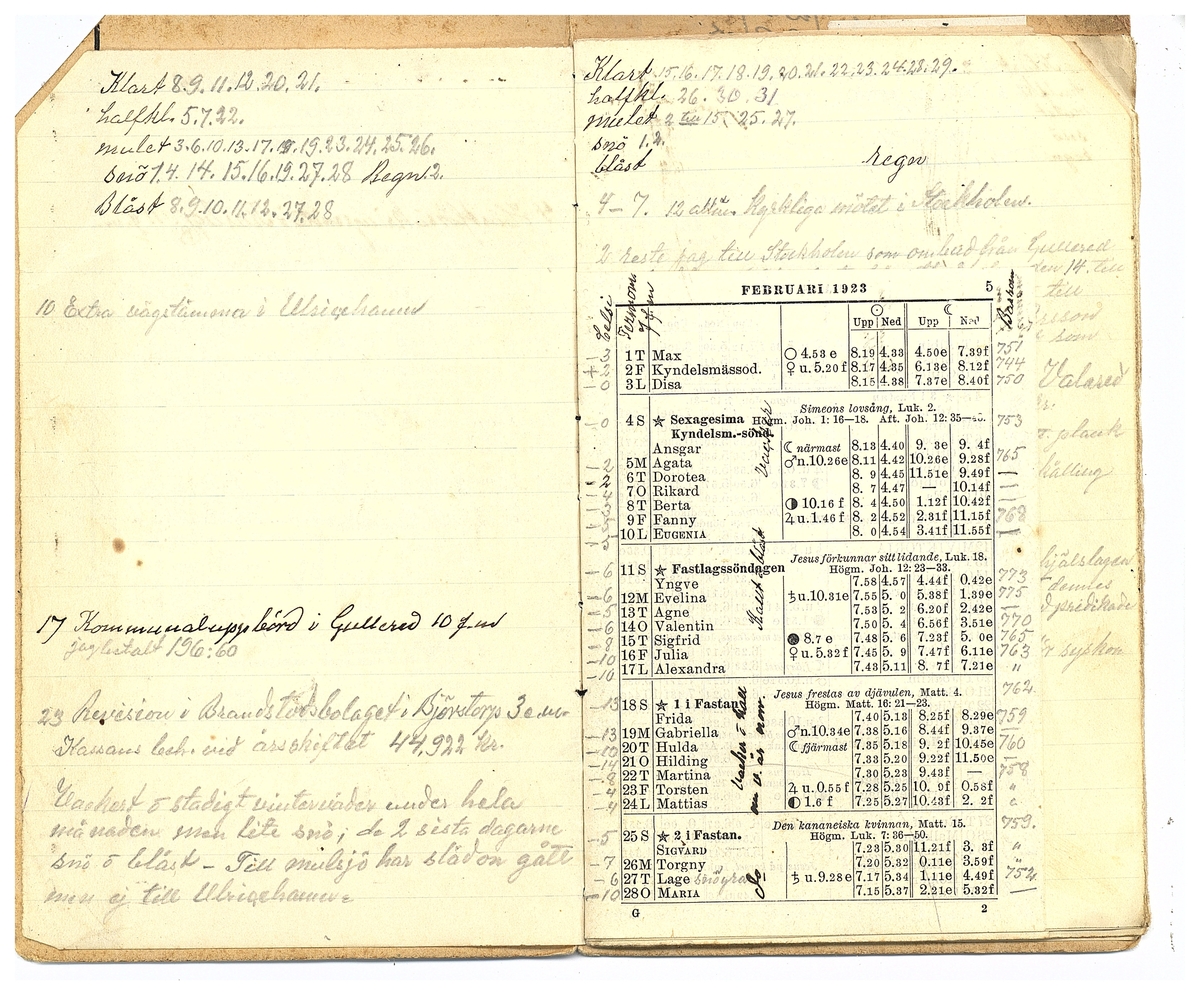 Klart 8.9.11.12.20.21.
halfkl. 5.7.22.
mulet 3.6.10.13.17.18.19.23.24.25.26.
snö 1.4. 14. 15.16.19.27.28 Regn 2.
Blåst 8.9.10.11.12.27.28
10 Extra vägstämma i Ulricehamn
17 Kommunaluppbörd i Gullered 10 f.m
jag betalt 196:60
23 Revision i Brandstodsbolaget i Björstorp 3 e.m.
Kassans beh. vid årsskiftet 44,922 kr.
Vackert o stadigt vinterväder under hela
månaden men lite snö; de 2 sista dagarne
snö o blåst - Till mulsjö har slädon gått
men ej till Ulricehamn
Klart 15.16.17.18.19.20.21.22.23.24.28.29.
halfkl. 26. 30. 31
mulet 2 till 15. 25. 27.
snö 1.2.
blåst regn
4-7. 12 Kyrkliga mötet i Stockholm.
2 reste jag till Stockholm som ombud från Gullered
den 14. till
till
som
FEBRUARI 1923 5
Upp Ned Upp Ned
+3 1 T Max ○ 4.53 e 8.19 4.33 4.50e 7.39f 751
+2 2 F Kyndelsmässod. ♀ u. 5.20 f 8.17 4.35 6.13e 8.12f 744
0 3 L Disa 8.15 4.38 7.37e 8.40f 750
Valared
Simeons lovsång, Luk. 2.
0 4 S ☆ Sexagesima Högm. Joh. 1: 16—18. Aft. Joh. 12: 35— 753
Kyndelsm.-sönd
plank
Ansgar ☾ närmast 8.13 4.40 9. 3e 9. 4f
5 M Agata ♂ n.10.26e 8.11 4.42 10.26e 9.28f 765
6 T Dorotea 8. 9 4.45 11.51e 9.49f
hålling
7 O Rikard 8. 7 4.47 — 10.14f
8 T Berta ◑ 10.16 f 8. 4 4.50 1.12f 10.42f
9 F Fanny ♃ u.1.46 f 8. 2 4.52 2.31f 11.15f 768
10 L EUGENIA 8. 0 4.54 3.41f 11.55f
Jesus förkunnar sitt lidande, Luk. 18.
hjälslagen
6 11 S ☆ Fastlagssöndagen Högm. Joh. 12: 23—33. 773
Yngve 7.58 4.57 4.44f 0.42e
12 M Evelina ♄ u.10.31e 7.55 5. 0 5.38f 1.39e 775
13 T Agne 7.53 5. 2 6.20f 2.42e
predikade
14 O Valentin 7.50 5. 4 6.56f 3.51e 770
15 T Sigfrid ● 8.7 e 7.48 5. 6 7.23f 5. 0e 765
16 F Julia ♀ u. 5.32 f 7.45 5. 9 7.47f 6.11e 763
syskon
17 L Alexandra 7.43 5.11 8. 7f 7.21e "
Jesus frestas av djävulen, Matt. 4.
-13 18 S ☆ 1 i Fastan. Högm. Matt. 16: 21—23. 762
Frida 7.40 5.13 8.25f 8.29e 759
-13 19 M Gabriella ♂ n.10.34e 7.38 5.16 8.44f 9.37e
-10 20 T Hulda ☾ fjärmast 7.35 5.18 9. 2f 10.45e 760
-14 21 O Hilding 7.33 5.20 9.22f 11.50e
22 T Martina 7.30 5.23 9.43f — 758
23 F Torsten ♃ u. 0.55 f 7.28 5.25 10. 9f 0.58f "
-4 24 L Mattias ◑ 1.6 f 7.25 5.27 10.43f 2. 2f
Den kananeiska kvinnan, Matt. 15. 759.
-5 25 S ☆ 2 i Fastan. Högm. Luk. 7: 36—50.
SIGVARD 7.23 5.30 11.21f 3. 3f "
-7 26 M Torgny 7.20 5.32 0.11e 3.59f "
-6 27 T Lage ♄ u.9.28e 7.17 5.34 1.11e 4.49f 752
-10 28 O MARIA 7.15 5.37 2.21e 5.32f —
G 2